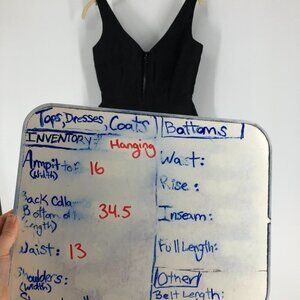 Tops, Dresses, Coats
INVENTORY: Hanging
Armpit to: 16
(Width)
Back Colla
Bottom of
(Length) 34.5
Waist: 13
Shoulders:
(Width)
Bottoms
Waist:
Rise:
Inseam:
Full Length:
Other
Belt Length: